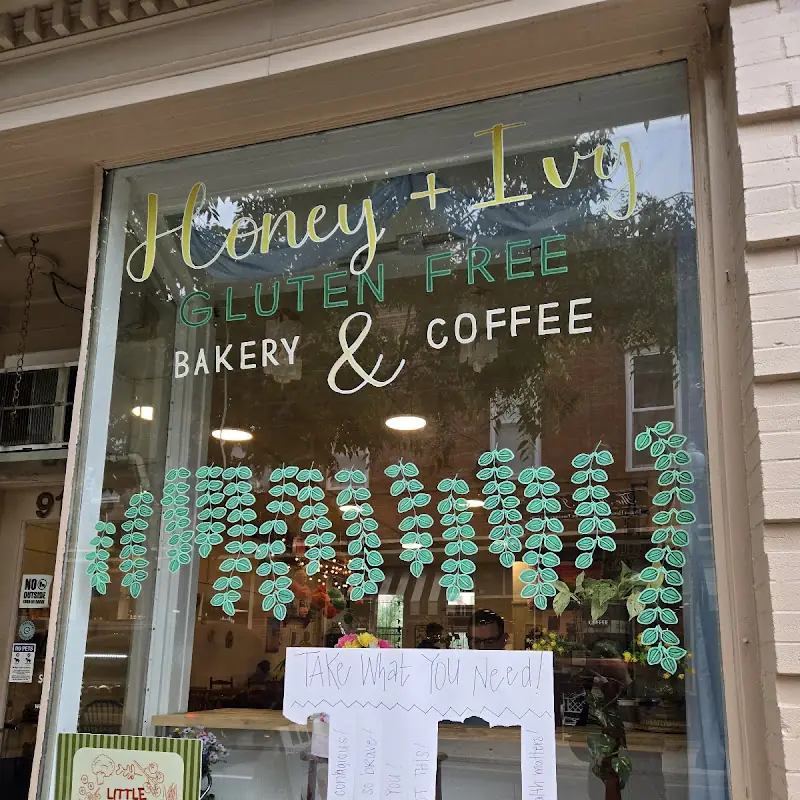 Honey + Ivy
GLUTEN FREE
BAKERY & COFFEE
COFFEE
NO
OUTSIDE
NO PETS
TAKE What You Need!
contagious!
so brave!
YOU!
T This!
alth matters!
LITTLE